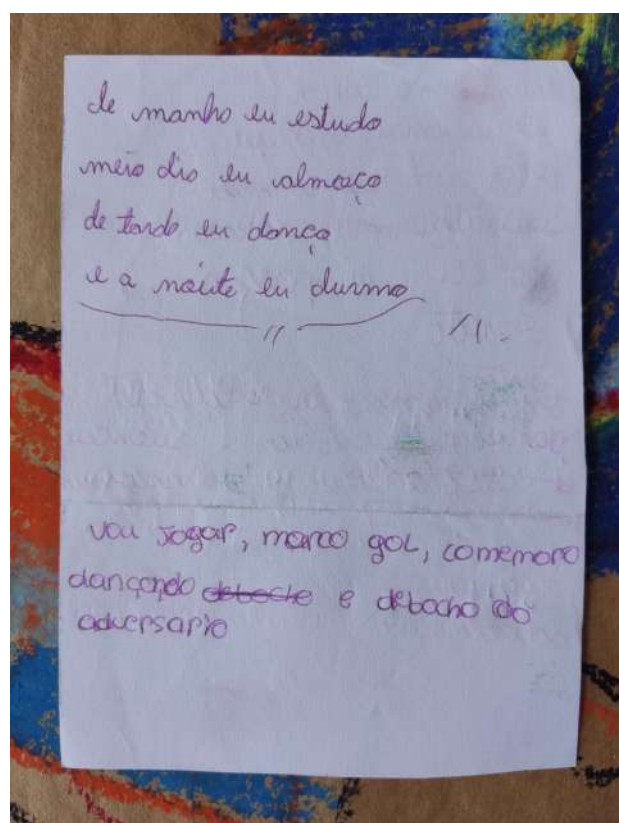 de manhã eu estudo
meio dia eu almoço
de tarde eu danço
e a noite eu durmo
vou jogar, marco gol, comemoro
dançando deboche e debocho do
adversario